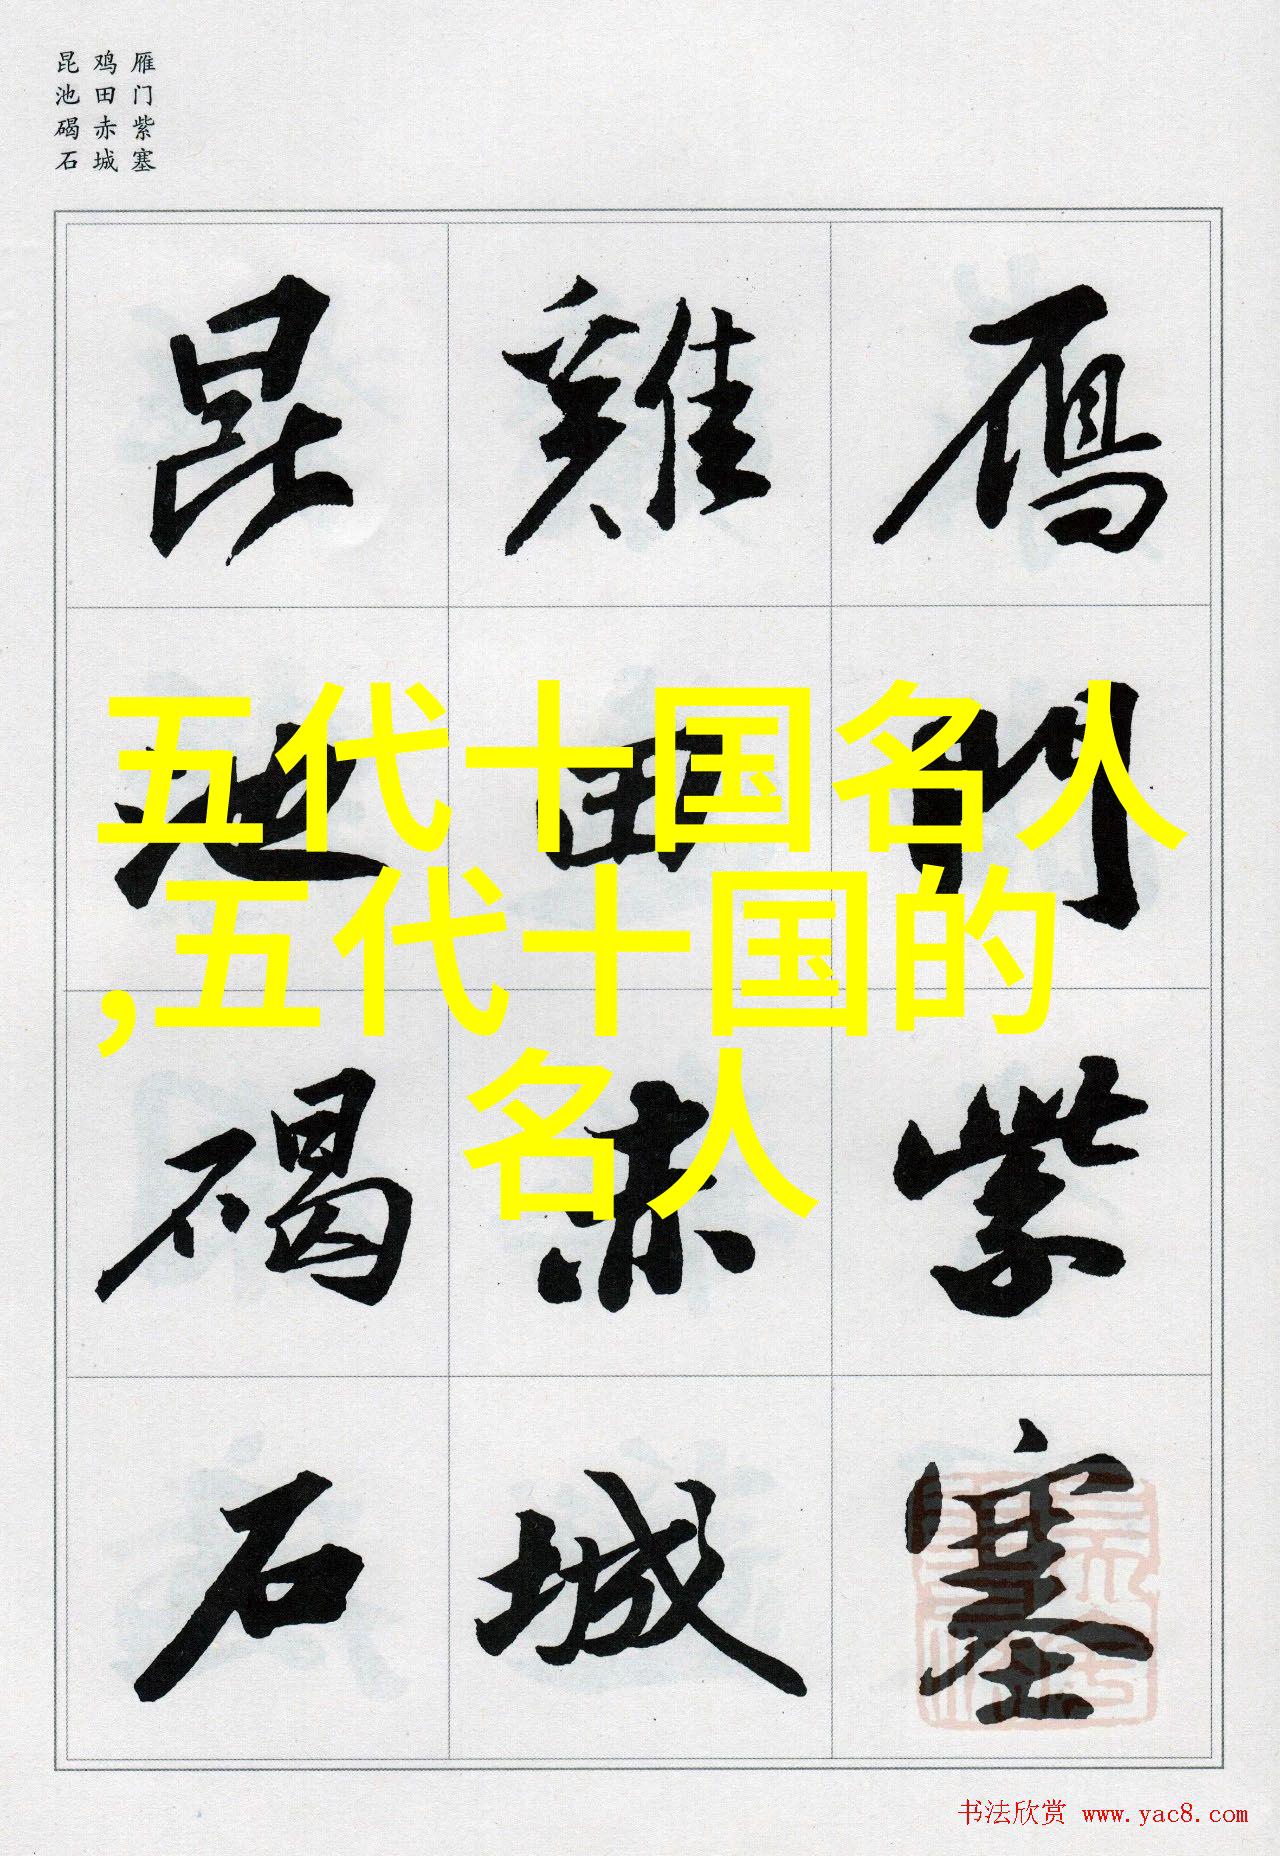 雁门紫塞
鸡田赤城
昆池碣石
雁門紫塞
雞田赤城
昆池碣石
五代十国名人
,五代十国的
名人
书法欣赏 www.yac8.com